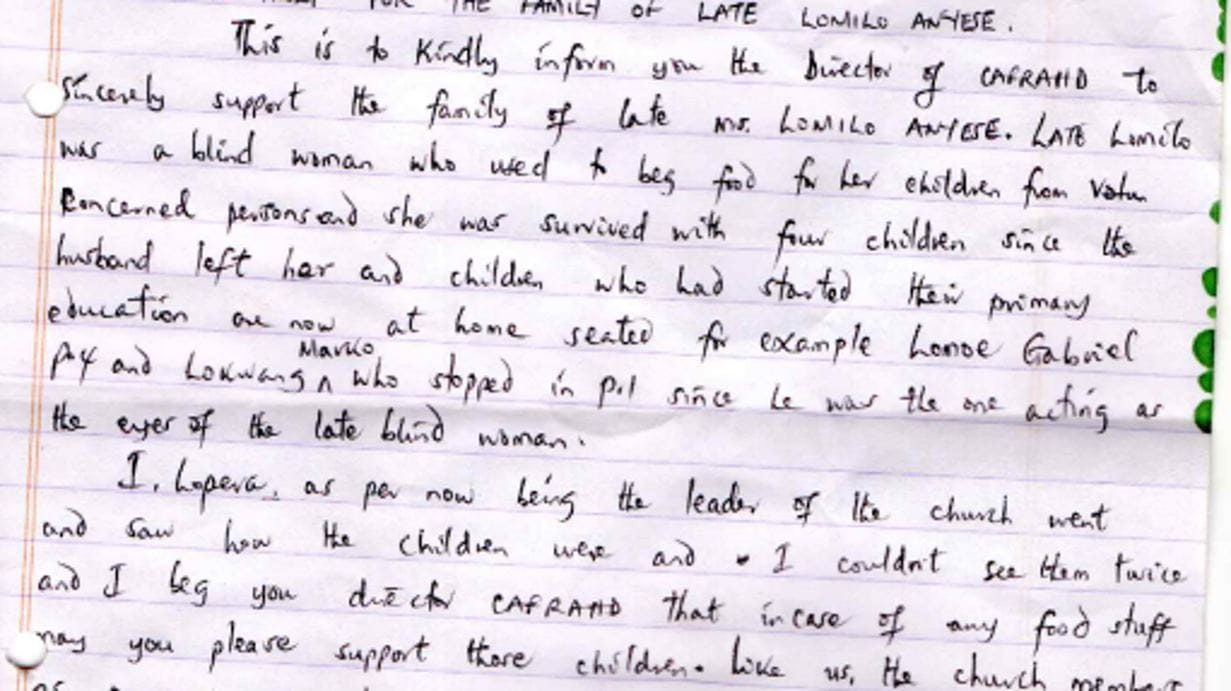 FOR THE FAMILY OF LATE LOMILO ANYESE.
This is to Kindly inform you the Director of CAFRAHD to
sincerely support the family of late ms. LOMILO ANYESE. LATE Lomilo
was a blind woman who used to beg food for her children from
Concerned persons and she was survived with four children since the
husband left her and children who had started their primary
education are now at home seated for example Gabriel
P.4 and Lokwang Marko who stopped in P.1 since he was the one acting as
the eyes of the late blind woman.
I, Lopera, as per now being the leader of the church went
and saw how the children were and I couldn't see them twice
and I beg you director CAFRAHD that incase of any food stuff
may you please support those children. Like us, the church members